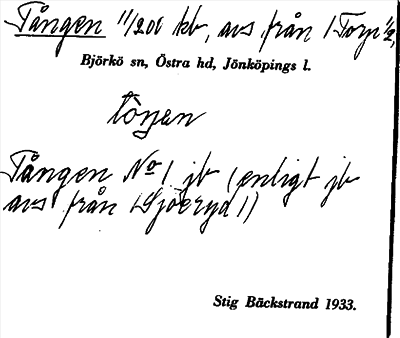 Tången 11/200 kb, avs från 1 Torp 1/2,
Björkö sn, Östra hd, Jönköpings l.
tåŋen
Tången No 1 jb (enligt jb
avs från Sjöeryd 1)
Stig Bäckstrand 1933.